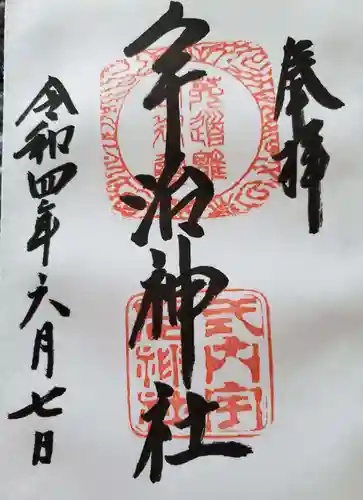 奉拝
宇治神社
式内宇治神社
令和四年六月七日